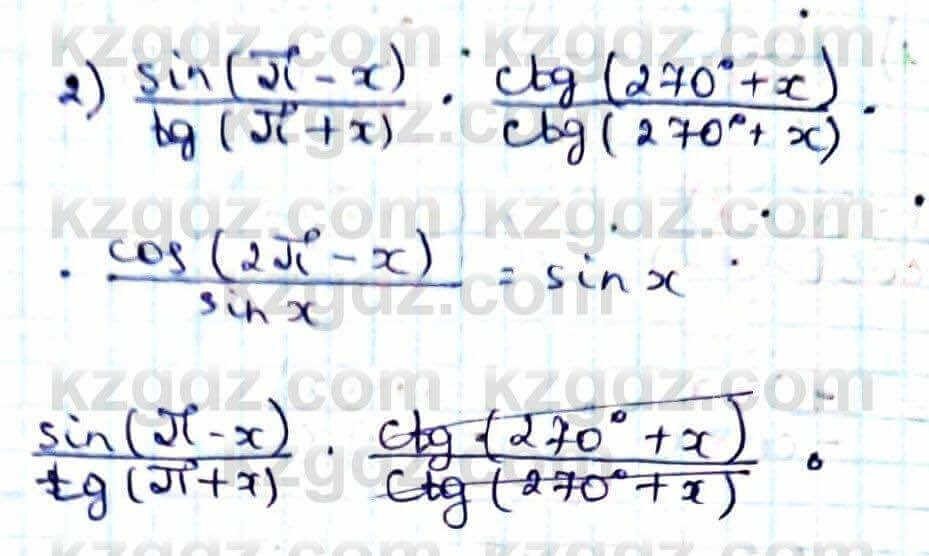 kzgdz.com kzgdz.com
2) sin(π - x) / tg(π + x) · ctg(270° + x) / ctg(270° + x) ·
kzgdz.com kzgdz.com
· cos(2π - x) / sin x = sin x
kzgdz.com kzgdz.com
sin(π - x) / tg(π + x) · ctg(270° + x) / ctg(270° + x) ·